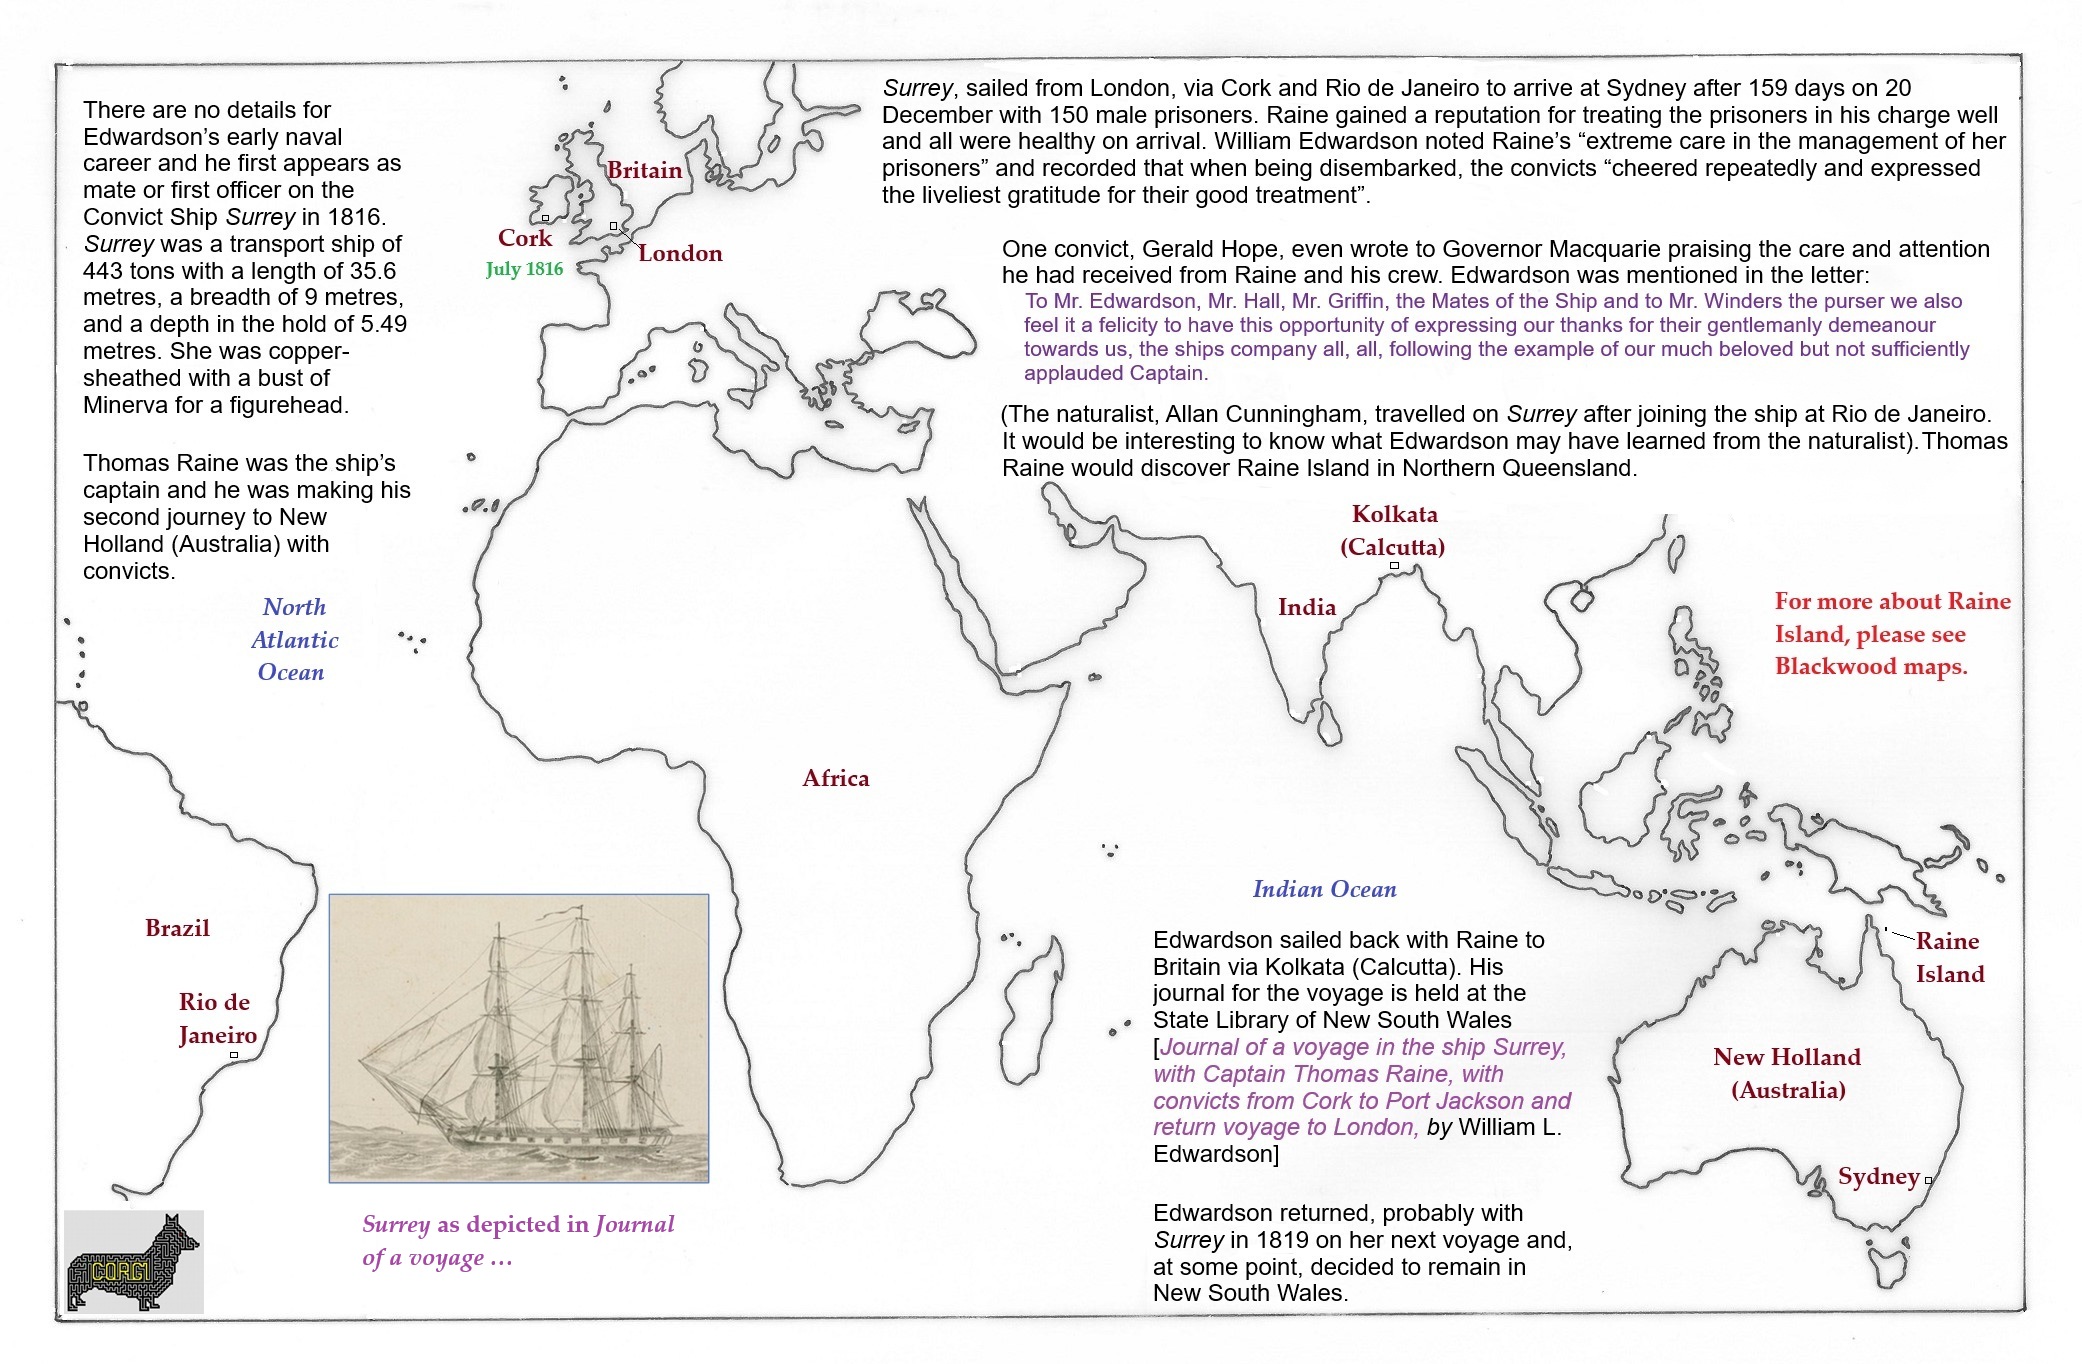 There are no details for
Edwardson's early naval
career and he first appears as
mate or first officer on the
Convict Ship Surrey in 1816.
Surrey was a transport ship of
443 tons with a length of 35.6
metres, a breadth of 9 metres,
and a depth in the hold of 5.49
metres. She was copper-
sheathed with a bust of
Minerva for a figurehead.
Thomas Raine was the ship's
captain and he was making his
second journey to New
Holland (Australia) with
convicts.
Surrey, sailed from London, via Cork and Rio de Janeiro to arrive at Sydney after 159 days on 20
December with 150 male prisoners. Raine gained a reputation for treating the prisoners in his charge well
and all were healthy on arrival. William Edwardson noted Raine's “extreme care in the management of her
prisoners” and recorded that when being disembarked, the convicts “cheered repeatedly and expressed
the liveliest gratitude for their good treatment”.
One convict, Gerald Hope, even wrote to Governor Macquarie praising the care and attention
he had received from Raine and his crew. Edwardson was mentioned in the letter:
To Mr. Edwardson, Mr. Hall, Mr. Griffin, the Mates of the Ship and to Mr. Winders the purser we also
feel it a felicity to have this opportunity of expressing our thanks for their gentlemanly demeanour
towards us, the ships company all, all, following the example of our much beloved but not sufficiently
applauded Captain.
(The naturalist, Allan Cunningham, travelled on Surrey after joining the ship at Rio de Janeiro.
It would be interesting to know what Edwardson may have learned from the naturalist). Thomas
Raine would discover Raine Island in Northern Queensland.
Britain
Cork
July 1816
London
North
Atlantic
Ocean
Kolkata
(Calcutta)
India
For more about Raine
Island, please see
Blackwood maps.
Africa
Brazil
Rio de
Janeiro
Indian Ocean
Edwardson sailed back with Raine to
Britain via Kolkata (Calcutta). His
journal for the voyage is held at the
State Library of New South Wales
[Journal of a voyage in the ship Surrey,
with Captain Thomas Raine, with
convicts from Cork to Port Jackson and
return voyage to London, by William L.
Edwardson]
Edwardson returned, probably with
Surrey in 1819 on her next voyage and,
at some point, decided to remain in
New South Wales.
Raine
Island
New Holland
(Australia)
Sydney
Surrey as depicted in Journal
of a voyage …
CORGI